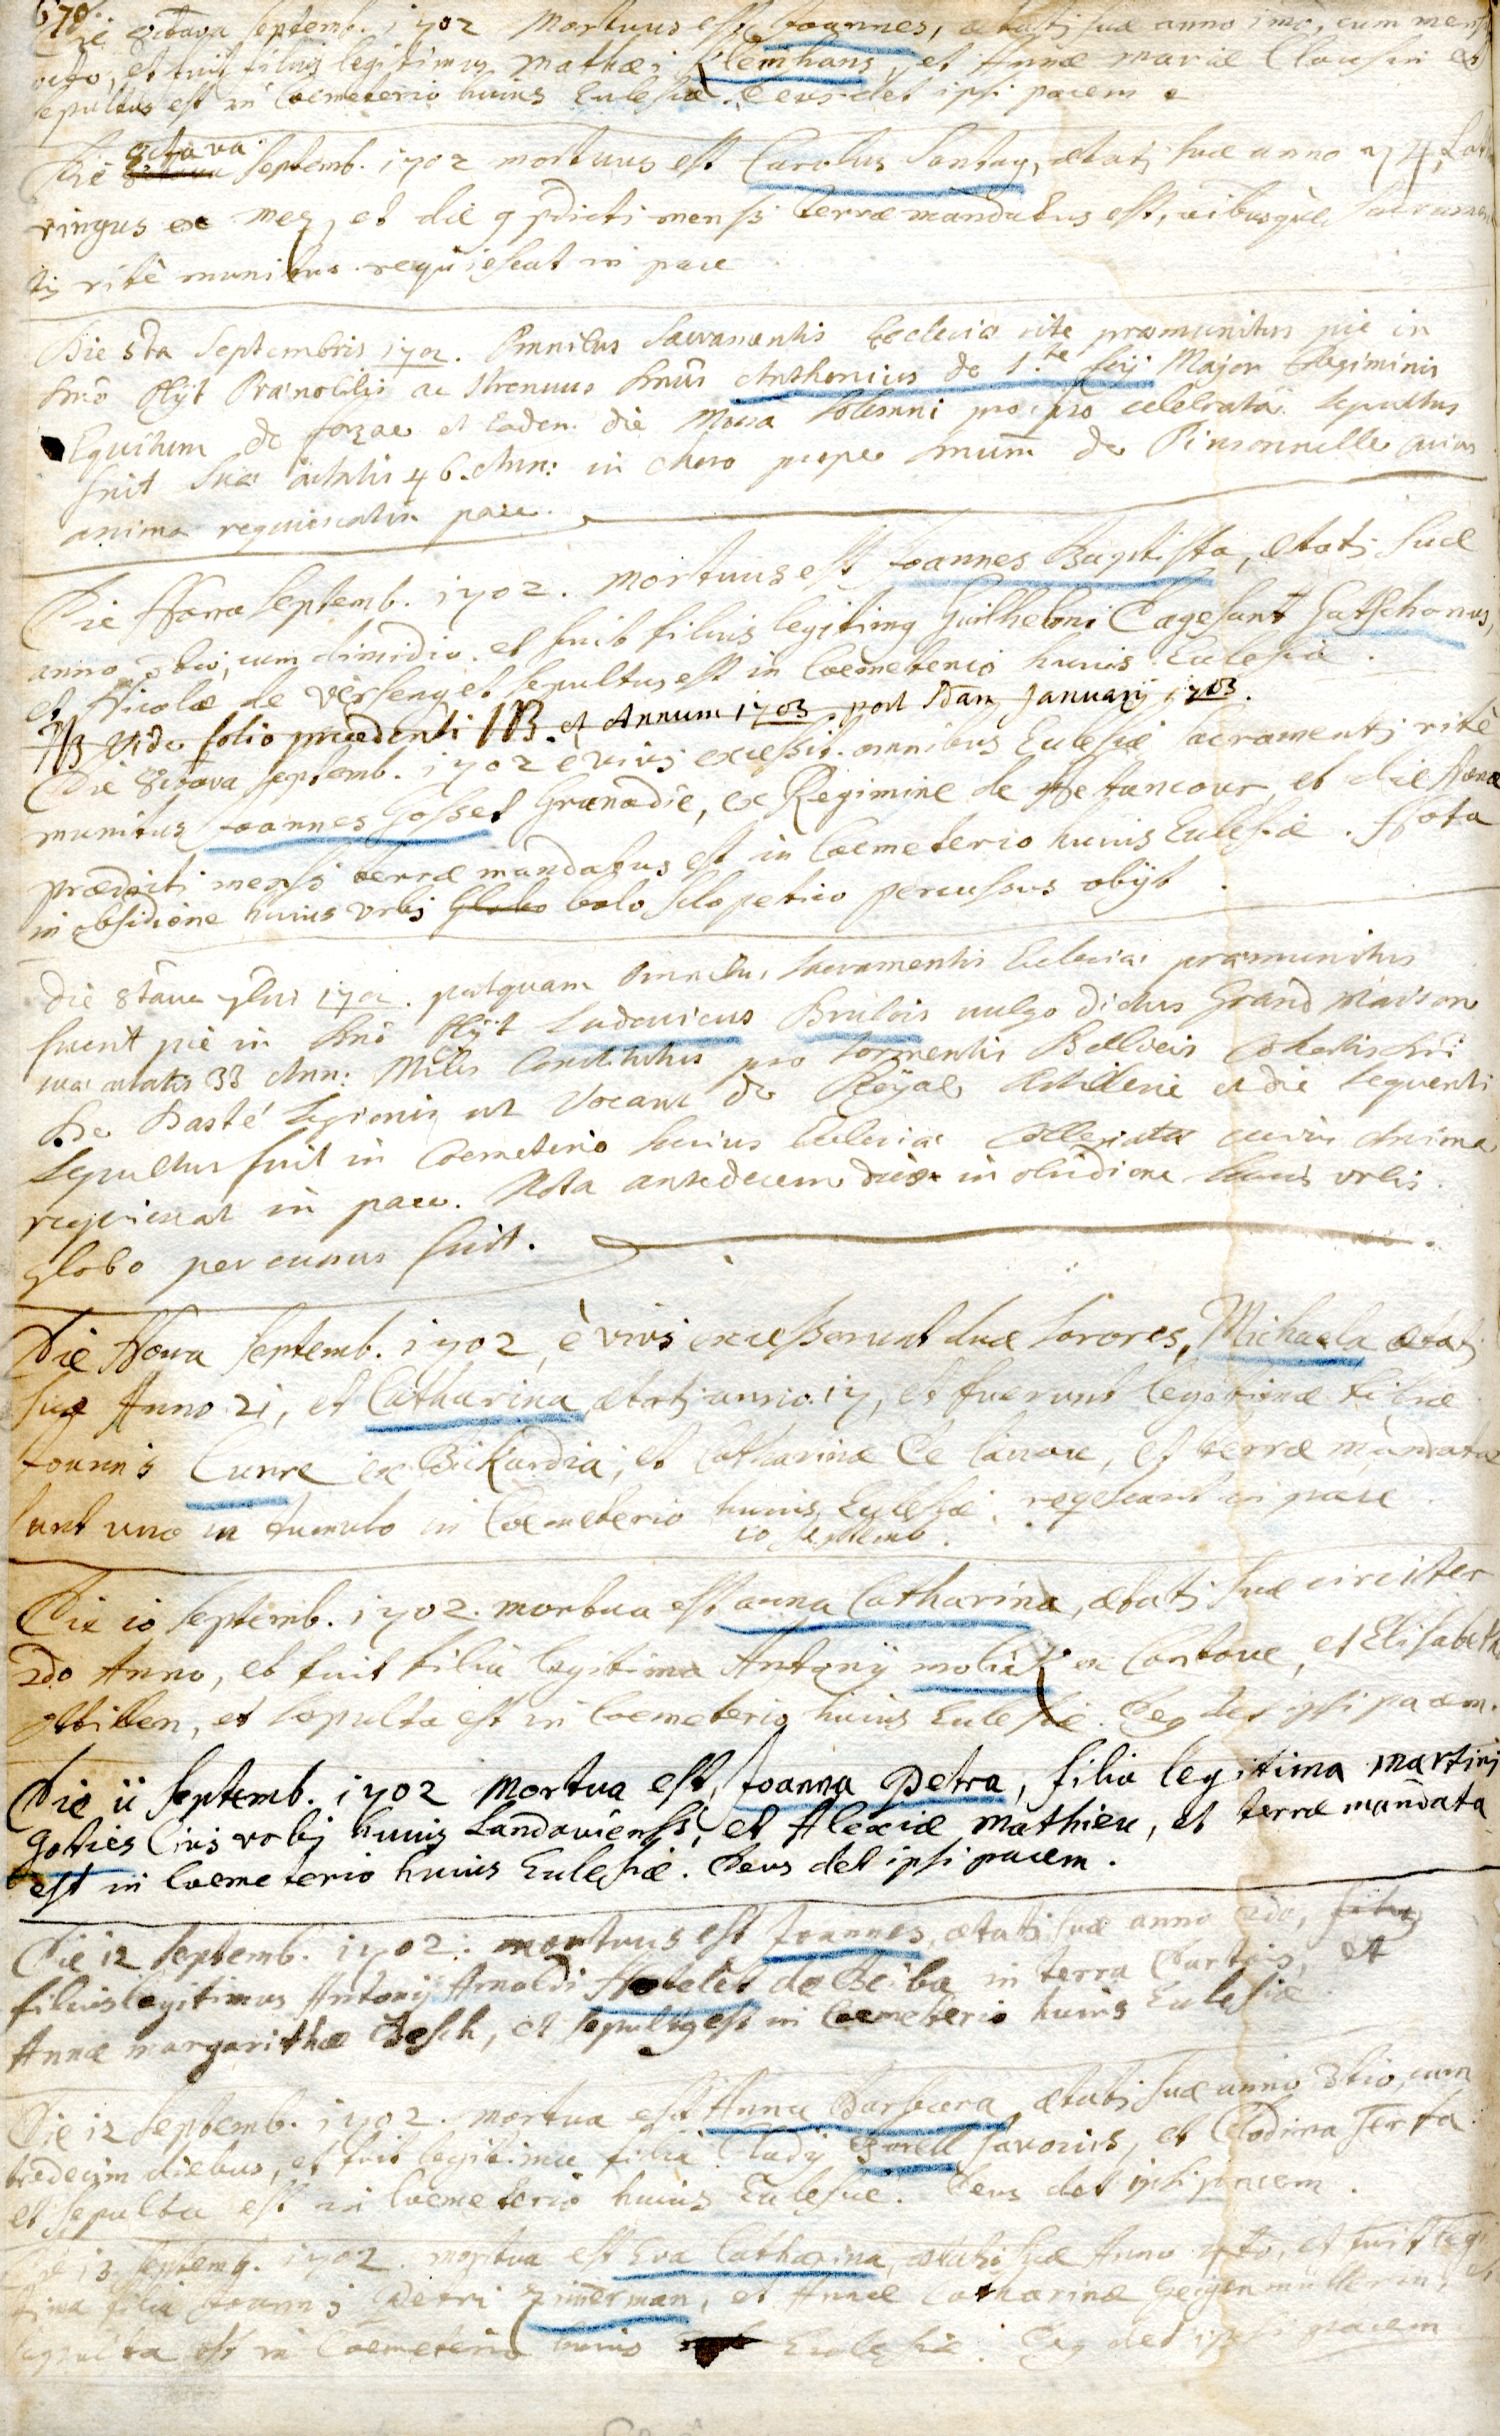 670.
Die octava Septemb. 1702 Mortuus est Joannes, ætatis suæ anno imo, cum mens
octo, et fuit filius legitimus Mathæi Klemhans, et Annæ mariæ Clausin et
sepultus est in Coemeterio huius Eulesiæ. Deus det ipsi pacem
octava
Die octava Septemb. 1702 mortuus est Carolus Santay, ætatis suæ anno 74, Lota
ringus ex Mez, et die 9 pdicti mensis terræ mandatus est, sacramen
tis ritè munitus. requiescat in pace
Die 8ta Septembris 1702. Omnibus Sacramentis Ecclesiæ rite præmunitus pie in
Dnō Obijt Prænobilis ac Strenuus Dnūs Anthonius de Ste Major Regiminis
Equitum de forzac et Eadem die Missa Solemni pro ipso celebratâ Sepultus
fuit Suæ ætatis 46. Ann: in choro prope Dnum de Pinsonnelle cuius
anima requiescat in pace.
Die Nona Septemb. 1702. Mortuus est Joannes Baptista, ætatis suæ
anno 3tio, cum dimidio. et fuit filius legitimus Guilhelmi Cagesant Gatschonus,
et Nicolæ de Verseny et sepultus est in Coemeterio huius Eulesiæ.
NB Vide folio præcedenti NB. et Annum 1703 post 1dam Januarij 1703.
Die 8ctava Septemb. 1702 è vivis excessit omnibus Eulesiæ acramentis ritè
munitus Joannes Gosset Granadie, ex Regimine de Betancour, et die Nona
prædicti mensis terræ mandatus est in Coemeterio huius Eulesiæ. Nota
in obsidione huius Vrbis Globo bolo sclopetico percussus obijt.
Die 8tava 7bris 1702. postquam Omnibus Sacramentis Ecclesiæ præmunitus
fuerit pie in Dnō Obijt Ludovicus Brulois vulgo dictus Grand Maison
suæ ætatis 33 Ann: Miles Constitutus pro tormentis Bellicis Cohortis Dni
De Basté Legionis ut Vocant de Royal Artillerie et die Sequenti
Sepultus fuit in Coemeterio huius Ecclesiæ Collegiatæ cuius Anima
requiescat in pace. Nota ante decem dies in obsidione huius urbis
globo percussus fuit.
Die Nona Septemb. 1702 è vivis excesserunt duæ Sorores, Michaela ætatis
suæ Anno 21, et Catharina ætatis anno 17, et fuerunt legitimæ filiæ
Joannis Cunre ex Bikardia, et Catharinæ Le Canou, et terræ mandatæ
sunt uno in tumulo in Coemeterio huius Eulesiæ, reqescant in pace
10 Septemb.
Die 10 Septemb. 1702. mortua est anna Catharina, ætatis suæ circiter
2do Anno, et fuit filia legitima Antonij molid ex Cantoue, et Elisabetha
Ittillen, et sepulta est in Coemeterio huius Eulesiæ. Deus det ipsi pacem.
Die 11 Septemb. 1702 Mortua est, Joanna Petra, filia legitima martini
Goties Civis vrbis huius Landaviensis, et Alexiæ Mathieu, et terræ mandata
est in Coemeterio huius Eulesiæ. Deus det ipsi pacem.
Die 12 Septemb. 1702. mortuus est Joannes, ætatis suæ anno 2do, filius
filius legitimus Antonij Arnoldi Hotelet de Beiba in terra Dartois, et
Annæ margarithæ Besch, et sepultus est in Coemeterio huius Eulesiæ
Die 12 Septemb. 1702. mortua est Anna Barbara ætatis suæ anno 3tio, cum
tredecim diebus, et fuit legitima filia Clady Borell savoius, et Clodina Serta
et sepulta est in Coemeterio huius Eulesiæ. Deus det ipsi pacem.
Die 13 Septemb. 1702. mortua est Eva Catharina, ætatis suæ Anno 4to, et fuit legi
tima filia Joannis Petri Zimerman, et Annæ Catharinæ Geigenmüllerin, et
sepulta est in Coemeterio huius Eulesiæ. Deus det ipsi pacem